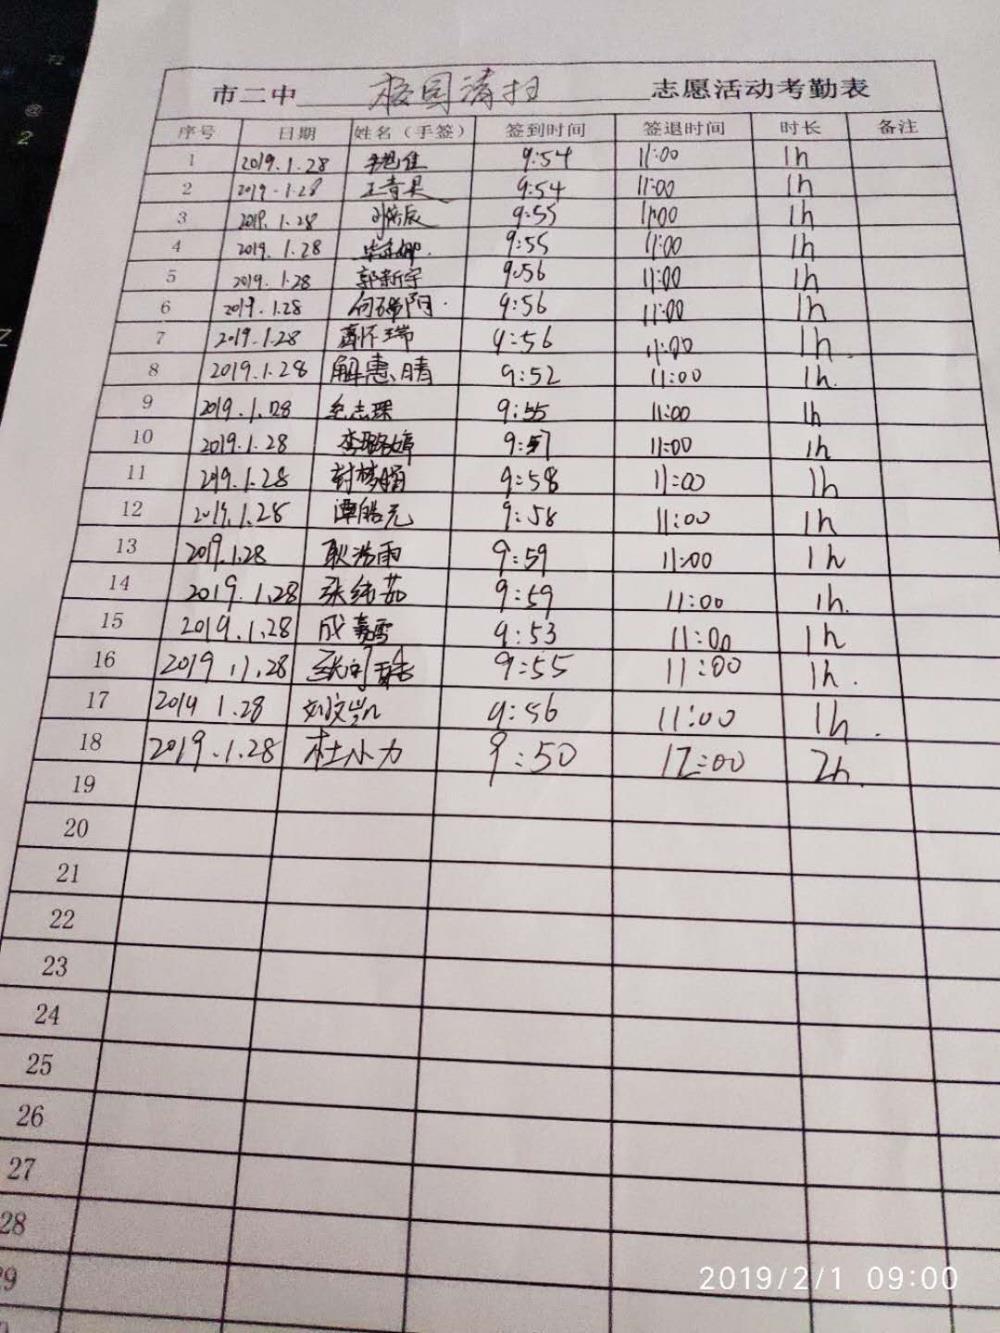 市二中 校园清扫 志愿活动考勤表
序号 日期 姓名（手签） 签到时间 签退时间 时长 备注
1 2019.1.28 9:54 11:00 1h
2 2019.1.28 9:54 11:00 1h
3 2019.1.28 9:55 11:00 1h
4 2019.1.28 9:55 11:00 1h
5 2019.1.28 郭新宇 9:56 11:00 1h
6 2019.1.28 9:56 11:00 1h
7 2019.1.28 9:56 11:00 1h.
8 2019.1.28 解惠晴 9:52 11:00 1h.
9 2019.1.28 9:55 11:00 1h
10 2019.1.28 李璐婷 9:57 11:00 1h
11 2019.1.28 9:58 11:00 1h
12 2019.1.28 谭皓元 9:58 11:00 1h
13 2019.1.28 耿浩雨 9:59 11:00 1h
14 2019.1.28 9:59 11:00 1h.
15 2019.1.28 9:53 11:00 1h
16 2019.1.28 9:55 11:00 1h.
17 2019 1.28 刘文凯 9:56 11:00 1h.
18 2019.1.28 杜小力 9:50 12:00 2h.
19
20
21
22
23
24
25
26
27
28
29
2019/2/1 09:00